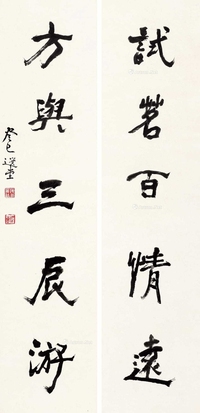 試茗百情遠
方與三辰游
癸巳選堂